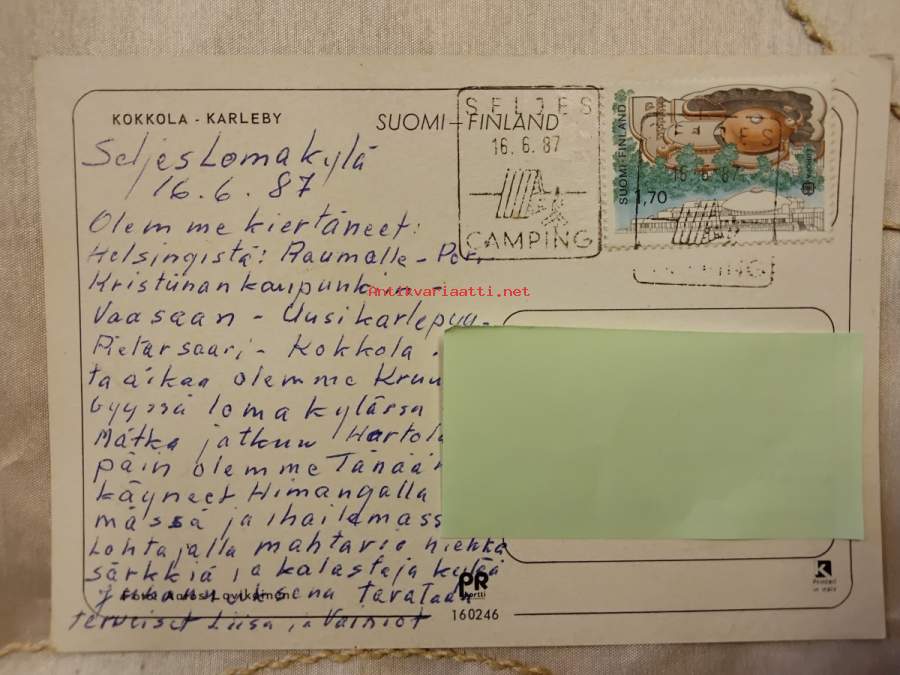 KOKKOLA - KARLEBY
SUOMI - FINLAND
SELJES
16. 6. 87
CAMPING
SUOMI - FINLAND
1,70
16. 6. 87
Seljes Lomakylä
16. 6. 87
Olemme kiertäneet:
Helsingistä: Raumalle - Pori
Kristiinankaupunkiin -
antikvariaatti.net
Vaasaan - Uusikarlepyy -
Pietarsaari - Kokkola.
ta aikaa olemme Kruu
byyssä lomakylässä
Matka jatkuu Hartola
päin olemme Tänään
käyneet Himangalla
mässä ja ihailemass
Lohtajalla mahtavia hiekka
särkkiä ja kalastaja kylää
juhannuksena tavataan
terveiset Liisa ja Vainiot
PR
kortti
160246
K
Printed
in Italy